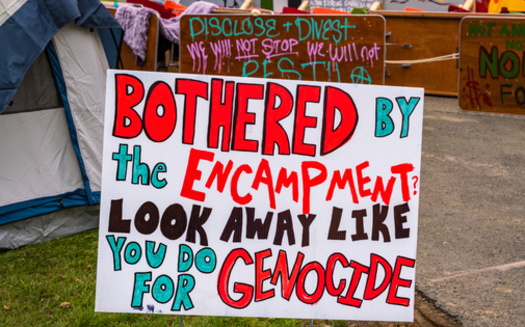 DISCLOSE + DIVEST
WE WILL NOT STOP WE WILL not
REST
BOTHERED BY
the ENCAMPMENT?
LOOK AWAY LIKE
YOU DO
FOR GENOCIDE
NOT
NO
FO